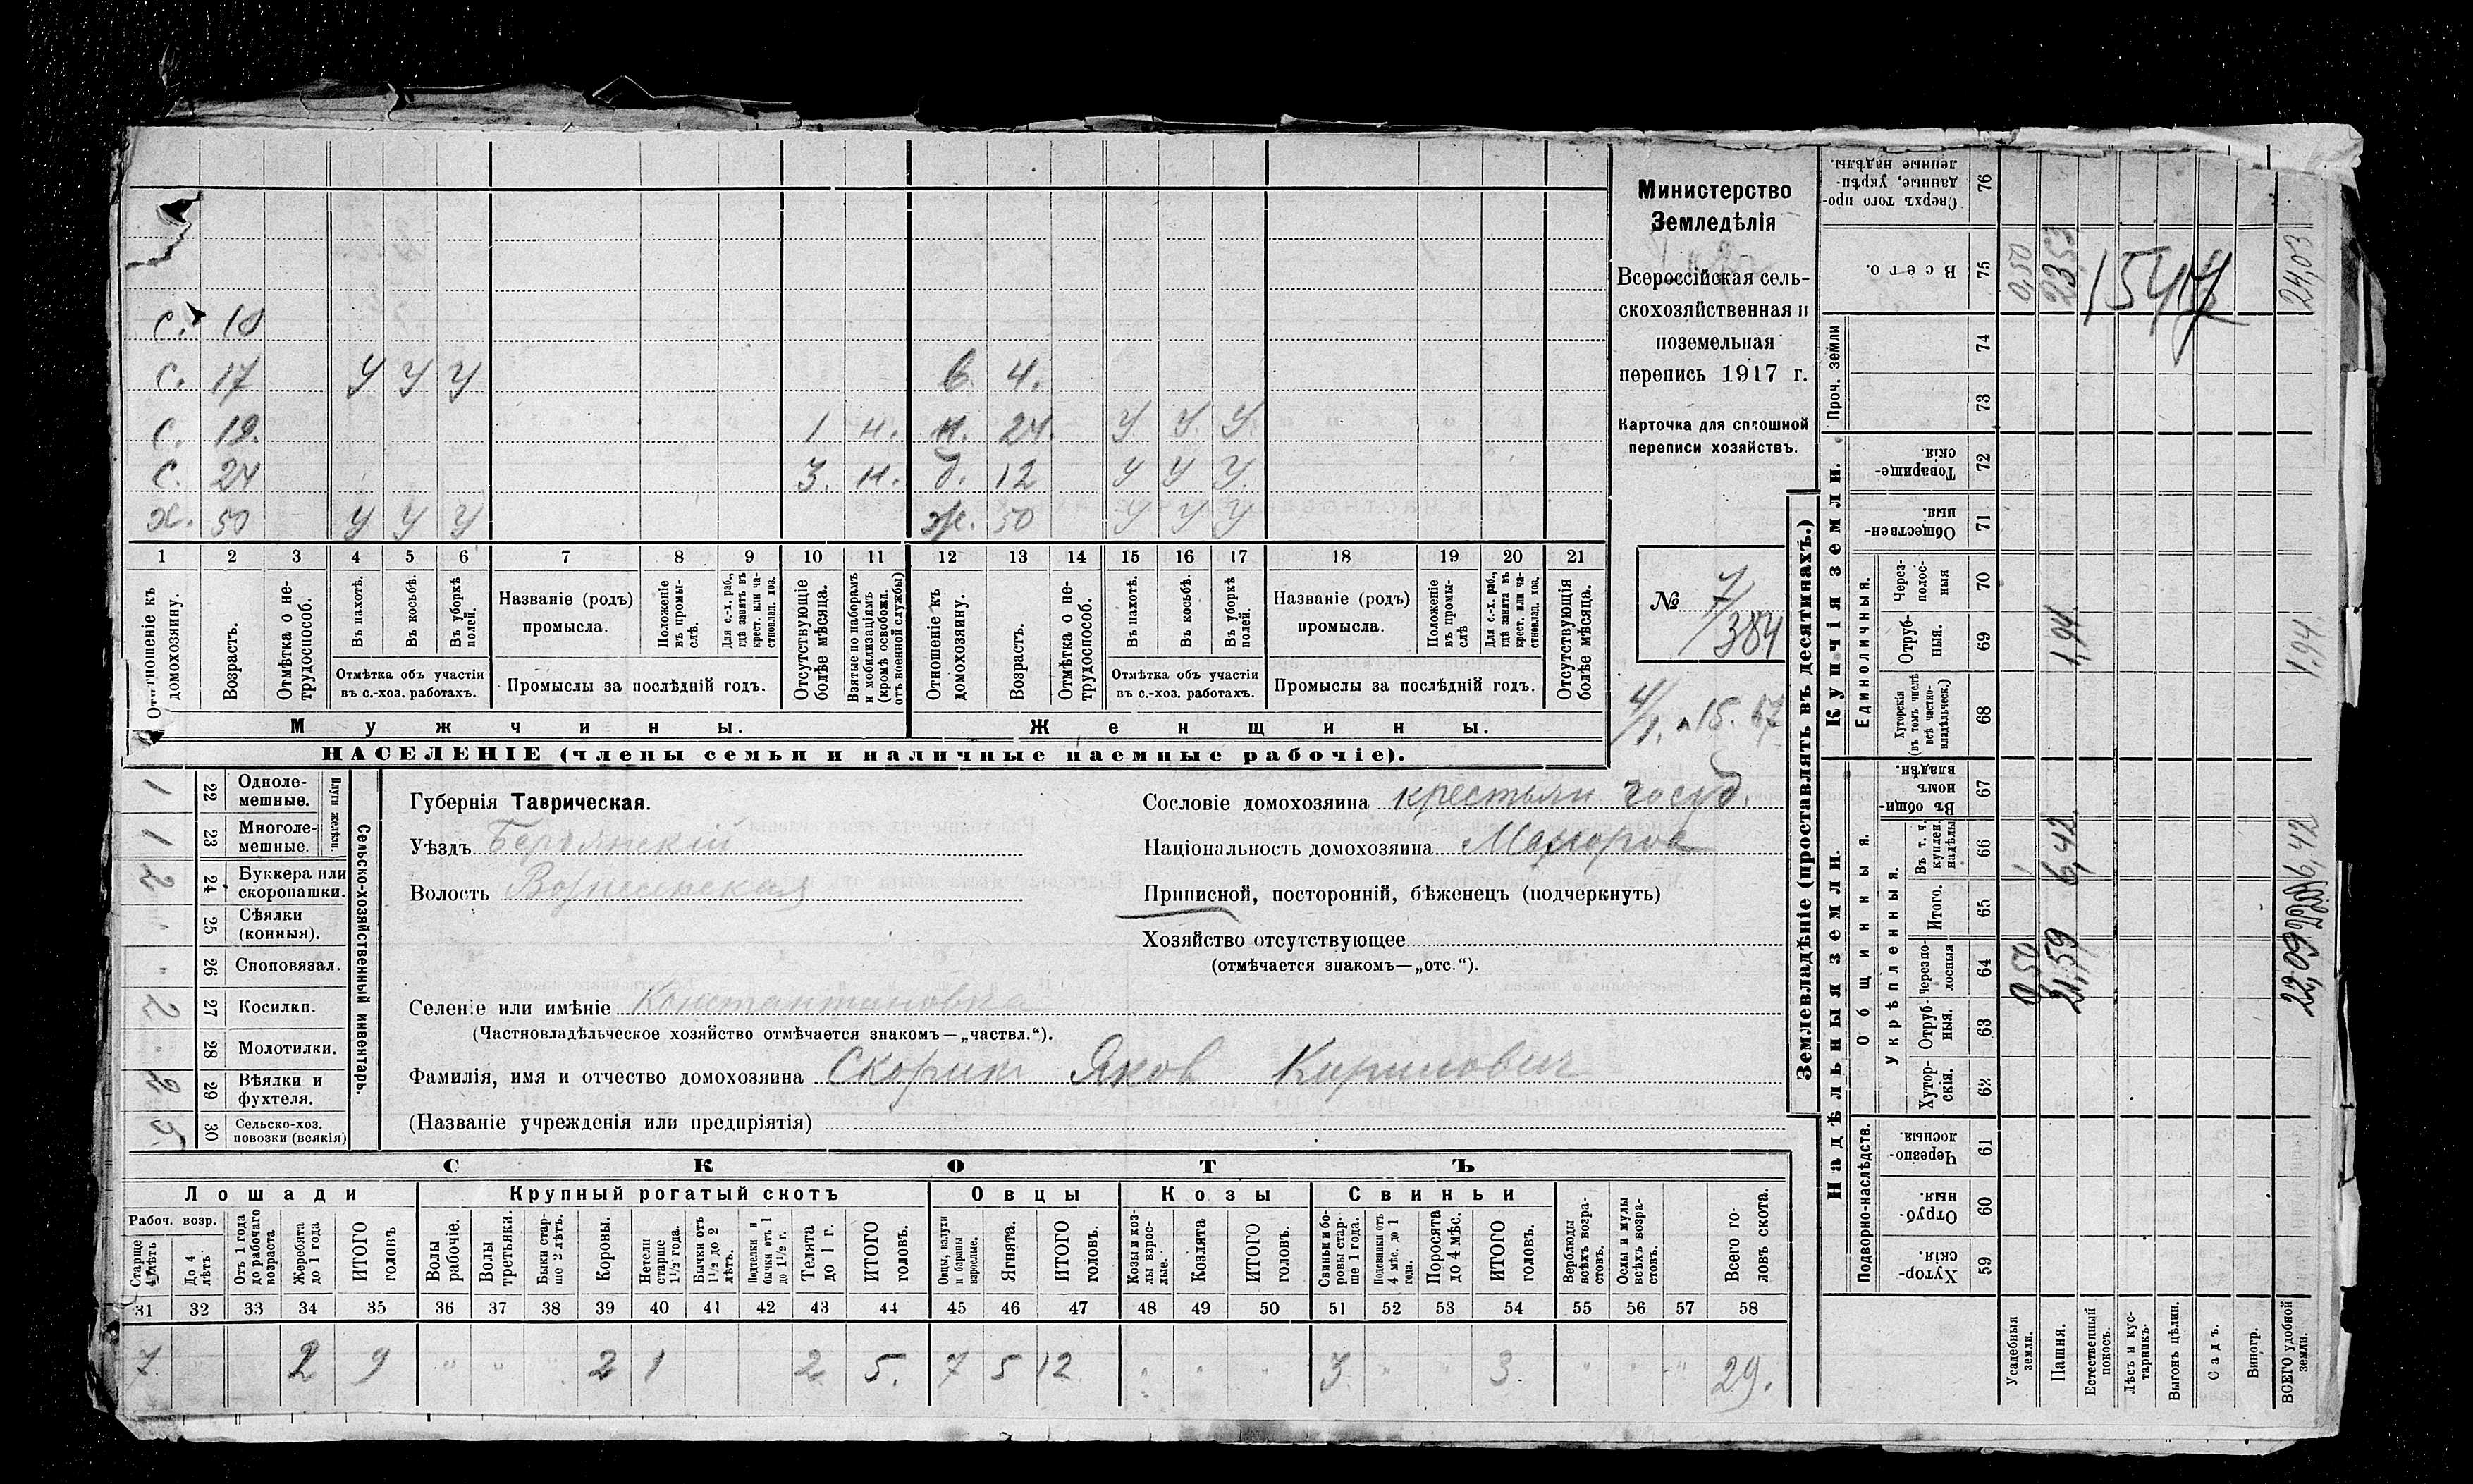 с. 18
с. 17 у у у в. 4.
с. 19. 1 н. н. 24. у у у.
с. 24 3. н. д. 12 у у у.
х. 50 у у у ж. 50 у у у
1 2 3 4 5 6 7 8 9 10 11 12 13 14 15 16 17 18 19 20 21
Отношеніе къ домохозяину.
Возрастъ.
Отмѣтка о нетрудоспособ.
Въ пахотѣ.
Въ косьбѣ.
Въ уборкѣ полей.
Отмѣтка объ участіи
въ с.-хоз. работахъ.
Названіе (родъ)
промысла.
Положеніе въ промыслѣ.
Для с.-х. раб., гдѣ занятъ въ крест. или частновлад. хоз.
Промыслы за послѣдній годъ.
Отсутствующіе болѣе мѣсяца.
Взятые по наборамъ и мобилизаціямъ (кромѣ освобожд. отъ военной службы)
Отношеніе къ домохозяину.
Возрастъ.
Отмѣтка о нетрудоспособ.
Въ пахотѣ.
Въ косьбѣ.
Въ уборкѣ полей.
Отмѣтка объ участіи
въ с.-хоз. работахъ.
Названіе (родъ)
промысла.
Положеніе въ промыслѣ
Для с.-х. раб., гдѣ занята въ крест. или частновлад. хоз.
Промыслы за послѣдній годъ.
Отсутствующія болѣе мѣсяца.
Мужчины. Женщины.
НАСЕЛЕНІЕ (члены семьи и наличные наемные рабочіе).
Министерство
Земледѣлія
Всероссійская сель-
скохозяйственная и
поземельная
перепись 1917 г.
Карточка для сплошной
переписи хозяйствъ.
№ 7/384
1 22 Одноле-
мешные.
1 23 Многоле-
мешные.
Плуги желѣзн.
2 24 Буккера или
скоропашки.
" 25 Сѣялки
(конныя).
" 26 Сноповязал.
2 27 Косилки.
28 Молотилки.
2 29 Вѣялки и
фухтеля.
5. 30 Сельско-хоз.
повозки (всякія)
Сельско-хозяйственный инвентарь.
Губернія Таврическая.
Уѣздъ Бердянскій
Волость
Сословіе домохозяина крестьян госуд.
Національность домохозяина Малоросс
Приписной, посторонній, бѣженецъ (подчеркнуть)
Хозяйство отсутствующее
(отмѣчается знакомъ—„отс.“).
Селеніе или имѣніе Константиновка
(Частновладѣльческое хозяйство отмѣчается знакомъ—„частвл.“).
Фамилія, имя и отчество домохозяина Скорик Яков Кирилович
(Названіе учрежденія или предпріятія)
СКОТЪ
Лошади Крупный рогатый скотъ Овцы Козы Свиньи
Рабоч. возр.
Старше 4 лѣтъ
До 4 лѣтъ
Отъ 1 года до рабочаго возраста
Жеребята до 1 года
ИТОГО головъ
Волы рабочіе.
Волы третьяки.
Быки старше 2 лѣтъ.
Коровы.
Нетели старше 1½ года.
Бычки отъ 1½ до 2 лѣтъ.
Подтелки и бычки отъ 1 до 1½ г.
Телята до 1 г.
ИТОГО головъ.
Овцы, валухи и бараны взрослые.
Ягнята.
ИТОГО головъ.
Козы и козлы взрослые.
Козлята
ИТОГО головъ.
Свиньи и боровы старше 1 года.
Подсвинки отъ 4 мѣс. до 1 года.
Поросята до 4 мѣс.
ИТОГО головъ.
Верблюды всѣхъ возрастовъ.
Ослы и мулы всѣхъ возрастовъ.
Всего головъ скота.
31 32 33 34 35 36 37 38 39 40 41 42 43 44 45 46 47 48 49 50 51 52 53 54 55 56 57 58
7. 2 9 " " " 2 1 2 5. 7 5 12 " " " 3. " " 3. " " " 29.
Землевладѣніе (проставлять въ десятинахъ.)
Надѣльныя земли. Купчія земли. Проч. земли
Подворно-наслѣдств.
Общинныя.
Укрѣпленныя.
Единоличныя.
Хуторскія. 59
Отрубныя. 60
Черезполосныя. 61
Хуторскія. 62
Отрубныя. 63
Черезполосныя 64
Итого. 65
Въ т. ч. куплен. надѣлы 66
Въ общинномъ владѣн. 67
Хуторскія (въ томъ числѣ всѣ частновладѣльческ.) 68
Отрубныя. 69
Черезполосныя 70
Общественныя. 71
Товарищескія. 72
73
74
Всего. 75
Сверхъ того проданные, укрѣпленные надѣлы. 76
Усадебныя земли. 0,50 0,50
Пашня. 21,59 6,42 1,94 23,53
Естественный покосъ.
Лѣсъ и кустарникъ.
Выгонъ цѣлин.
Садъ.
Виногр.
ВСЕГО удобной земли. 22,09 6,42 1,94 24,03
1547